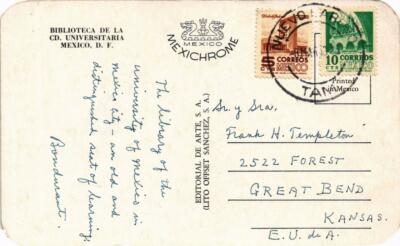 BIBLIOTECA DE LA
CD. UNIVERSITARIA
MEXICO, D. F.
MEXICO
MEXICHROME
The library of the
university of Mexico in
Mexico City - an old and
distinguished seat of learning.
Bondurant.
EDITORIAL DE ARTE, S. A.
(LITO OFFSET SANCHEZ, S. A.)
CORREOS
MEXICO
CORREOS
10
CTS
NUEVO LAR
TAM
Printed
in Mexico
Sr. y Sra.
Frank H. Templeton
2522 FOREST
GREAT BEND
KANSAS.
E. U. de A.